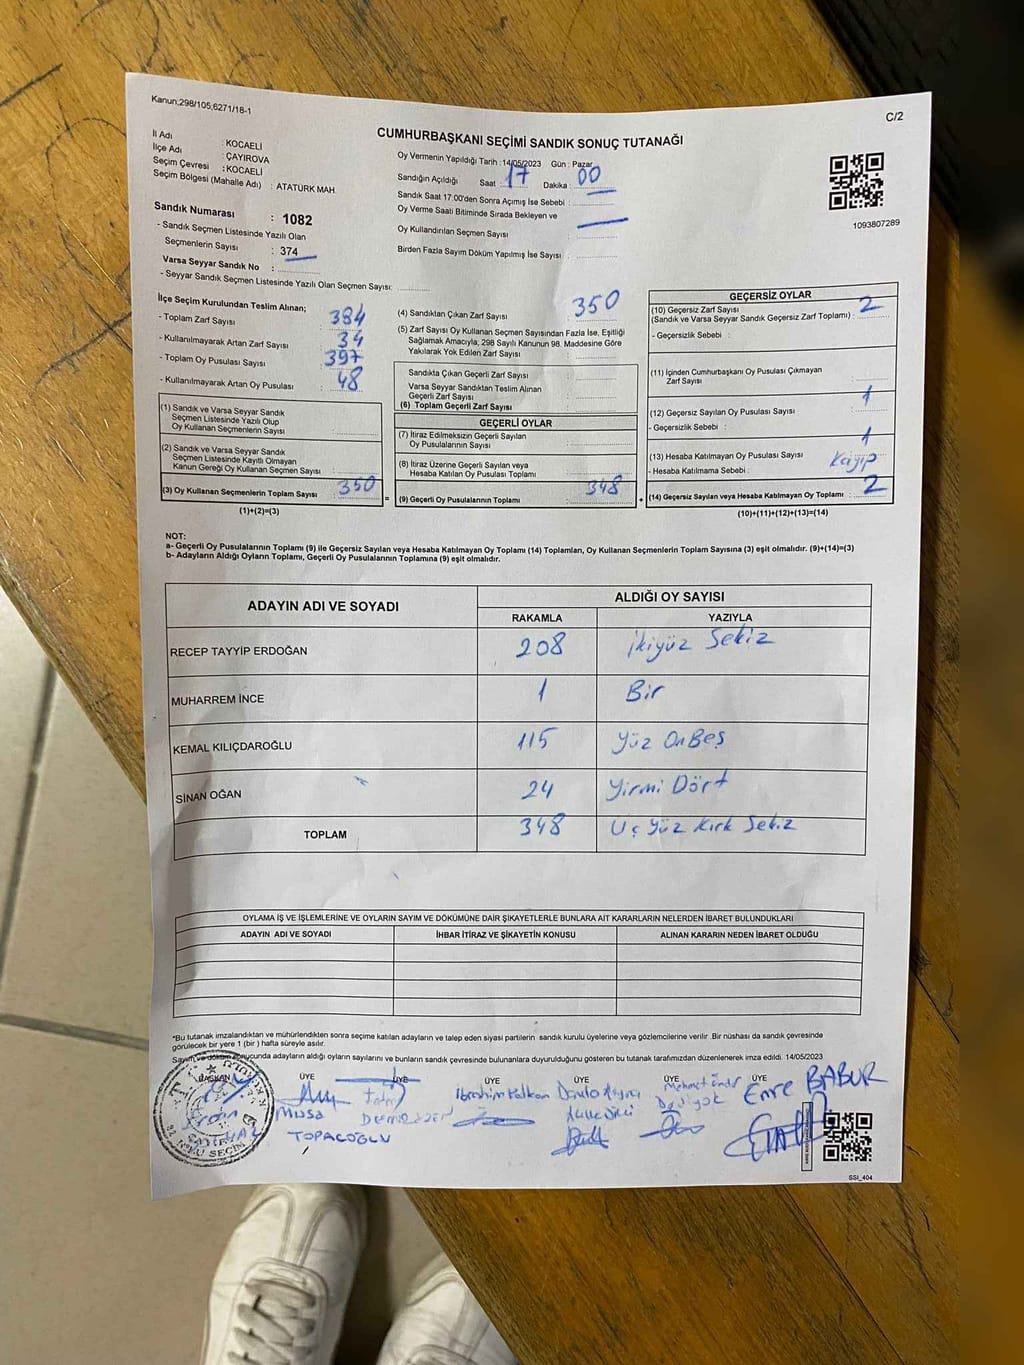 Kanun;298/105,6271/18-1
C/2
CUMHURBAŞKANI SEÇİMİ SANDIK SONUÇ TUTANAĞI
İl Adı : KOCAELİ
İlçe Adı : ÇAYIROVA
Seçim Çevresi : KOCAELİ
Seçim Bölgesi (Mahalle Adı) : ATATÜRK MAH.
Sandık Numarası : 1082
- Sandık Seçmen Listesinde Yazılı Olan
Seçmenlerin Sayısı : 374
Varsa Seyyar Sandık No :
- Seyyar Sandık Seçmen Listesinde Yazılı Olan Seçmen Sayısı:
Oy Vermenin Yapıldığı Tarih : 14/05/2023 Gün : Pazar
Sandığın Açıldığı Saat : 17 Dakika : 00
Sandık Saat 17:00'den Sonra Açımış İse Sebebi :
Oy Verme Saati Bitiminde Sırada Bekleyen ve
Oy Kullandırılan Seçmen Sayısı :
Birden Fazla Sayım Döküm Yapılmış İse Sayısı :
1093807289
İlçe Seçim Kurulundan Teslim Alınan;
- Toplam Zarf Sayısı : 384
- Kullanılmayarak Artan Zarf Sayısı : 34
- Toplam Oy Pusulası Sayısı : 397
- Kullanılmayarak Artan Oy Pusulası : 48
(1) Sandık ve Varsa Seyyar Sandık
Seçmen Listesinde Yazılı Olup
Oy Kullanan Seçmenlerin Sayısı :
(2) Sandık ve Varsa Seyyar Sandık
Seçmen Listesinde Kayıtlı Olmayan
Kanun Gereği Oy Kullanan Seçmen Sayısı :
(3) Oy Kullanan Seçmenlerin Toplam Sayısı : 350
(1)+(2)=(3)
(4) Sandıktan Çıkan Zarf Sayısı : 350
(5) Zarf Sayısı Oy Kullanan Seçmen Sayısından Fazla İse, Eşitliği
Sağlamak Amacıyla, 298 Sayılı Kanunun 98. Maddesine Göre
Yakılarak Yok Edilen Zarf Sayısı :
Sandıkta Çıkan Geçerli Zarf Sayısı :
Varsa Seyyar Sandıktan Teslim Alınan
Geçerli Zarf Sayısı :
(6) Toplam Geçerli Zarf Sayısı :
GEÇERLİ OYLAR
(7) İtiraz Edilmeksizin Geçerli Sayılan
Oy Pusulalarının Sayısı :
(8) İtiraz Üzerine Geçerli Sayılan veya
Hesaba Katılan Oy Pusulası Toplamı :
= (9) Geçerli Oy Pusulalarının Toplamı : 348 +
GEÇERSİZ OYLAR
(10) Geçersiz Zarf Sayısı 2
(Sandık ve Varsa Seyyar Sandık Geçersiz Zarf Toplamı) :
- Geçersizlik Sebebi :
(11) İçinden Cumhurbaşkanı Oy Pusulası Çıkmayan
Zarf Sayısı :
1
(12) Geçersiz Sayılan Oy Pusulası Sayısı :
- Geçersizlik Sebebi :
1
(13) Hesaba Katılmayan Oy Pusulası Sayısı :
- Hesaba Katılmama Sebebi : Kayıp
(14) Geçersiz Sayılan veya Hesaba Katılmayan Oy Toplamı : 2
(10)+(11)+(12)+(13)=(14)
NOT:
a- Geçerli Oy Pusulalarının Toplamı (9) ile Geçersiz Sayılan veya Hesaba Katılmayan Oy Toplamı (14) Toplamları, Oy Kullanan Seçmenlerin Toplam Sayısına (3) eşit olmalıdır. (9)+(14)=(3)
b- Adayların Aldığı Oyların Toplamı, Geçerli Oy Pusulalarının Toplamına (9) eşit olmalıdır.
ADAYIN ADI VE SOYADI ALDIĞI OY SAYISI
RAKAMLA YAZIYLA
RECEP TAYYİP ERDOĞAN 208 İkiyüz Sekiz
MUHARREM İNCE 1 Bir
KEMAL KILIÇDAROĞLU 115 Yüz OnBeş
SİNAN OĞAN 24 Yirmi Dört
TOPLAM 348 Üç Yüz Kırk Sekiz
OYLAMA İŞ VE İŞLEMLERİNE VE OYLARIN SAYIM VE DÖKÜMÜNE DAİR ŞİKAYETLERLE BUNLARA AİT KARARLARIN NELERDEN İBARET BULUNDUKLARI
ADAYIN ADI VE SOYADI İHBAR İTİRAZ VE ŞİKAYETİN KONUSU ALINAN KARARIN NEDEN İBARET OLDUĞU
*Bu tutanak imzalandıktan ve mühürlendikten sonra seçime katılan adayların ve talep eden siyasi partilerin sandık kurulu üyelerine veya gözlemcilerine verilir. Bir nüshası da sandık çevresinde
görülecek bir yere 1 (bir) hafta süreyle asılır.
Sayım ve döküm sonucunda adayların aldığı oyların sayılarını ve bunların sandık çevresinde bulunanlara duyurulduğunu gösteren bu tutanak tarafımızdan düzenlenerek imza edildi. 14/05/2023
BAŞKAN ÜYE ÜYE ÜYE ÜYE ÜYE ÜYE
İbrahim Kalkan Mehmet Emre BABUR
Musa
TOPACOĞLU
SSİ_404